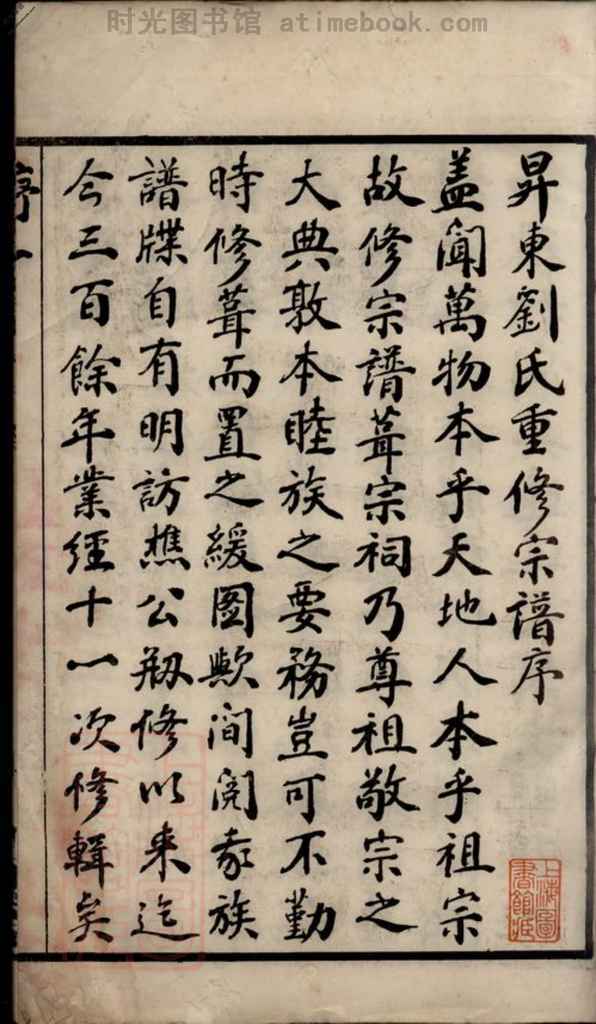 时光图书馆 atimebook.com
昇東劉氏重修宗譜序
盖聞萬物本乎天地人本乎祖宗
故修宗譜葺宗祠乃尊祖敬宗之
大典敦本睦族之要務豈可不勤
時修葺而置之緩圖歟間閱我族
譜牒自有明訪樵公剏修以来迄
今三百餘年業經十一次修輯矣
序一
上海圖
書館藏